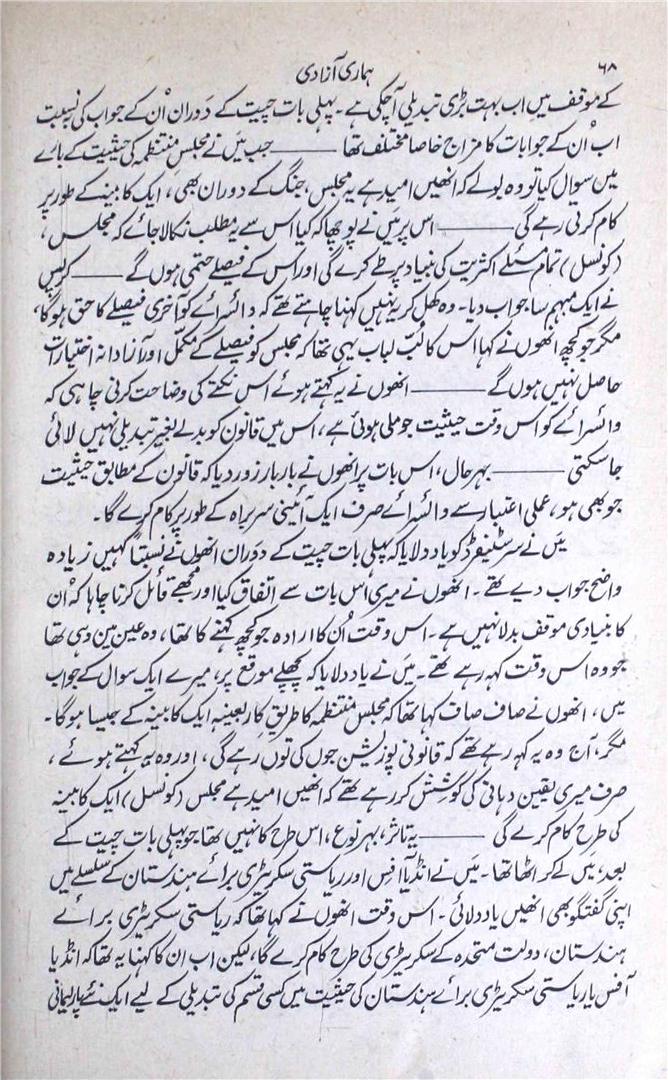 ۶۸
ہماری آزادی
کے موقف میں اب بہت بڑی تبدیلی آچکی ہے۔ پہلی بات چیت کے دَوران اُن کے جواب کی نسبت
اب اُن کے جوابات کا مزاج خاصا مختلف تھا ——— جب میں نے مجلسِ منتظمہ کی حیثیت کے بارے
میں سوال کیا تو وہ بولے کہ انھیں امید ہے یہ مجلس، جنگ کے دوران بھی، ایک کابینہ کے طور پر
کام کرتی رہے گی ——— اس پر میں نے پوچھا کہ کیا اس سے یہ مطلب نکالا جائے کہ مجلس،
(کونسل) تمام مسئلے اکثریت کی بنیاد پر طے کرے گی اور اس کے فیصلے حتمی ہوں گے ——— کرپس
نے ایک مبہم سا جواب دیا۔ وہ کھل کر یہ نہیں کہنا چاہتے تھے کہ وائسرائے کو آخری فیصلے کا حق ہوگا،
مگر جو کچھ انھوں نے کہا اس کا لُبِّ لباب یہی تھا کہ مجلس کو فیصلے کے مکمل اور آزادانہ اختیارات
حاصل نہیں ہوں گے ——— انھوں نے یہ کہتے ہوئے اس نکتے کی وضاحت کرنی چاہی کہ
وائسرائے کو اس وقت حیثیت جو ملی ہوئی ہے، اس میں قانون کو بدلے بغیر تبدیلی نہیں لائی
جاسکتی ——— بہرحال، اس بات پر انھوں نے بار بار زور دیا کہ قانون کے مطابق حیثیت
جو بھی ہو، عملی اعتبار سے وائسرائے صرف ایک آئینی سربراہ کے طور پر کام کرے گا۔
میں نے سر سٹیفرڈ کو یاد دلایا کہ پہلی بات چیت کے دَوران انھوں نے نسبتاً کہیں زیادہ
واضح جواب دیے تھے۔ انھوں نے میری اس بات سے اتفاق کیا اور مجھے قائل کرنا چاہا کہ اُن
کا بنیادی موقف بدلا نہیں ہے۔ اس وقت اُن کا ارادہ جو کچھ کہنے کا تھا، وہ عین مین وہی تھا
جو وہ اس وقت کہہ رہے تھے۔ میں نے یاد دلایا کہ پچھلے موقع پر، میرے ایک سوال کے جواب
میں، انھوں نے صاف صاف کہا تھا کہ مجلس منتظمہ کا طریقِ کار بعینہ ایک کابینہ کے جیسا ہوگا۔
مگر، آج وہ یہ کہہ رہے تھے کہ قانونی پوزیشن جوں کی توں رہے گی، اور وہ یہ کہتے ہوئے،
صرف میری یقین دہانی کی کوشش کر رہے تھے کہ انھیں امید ہے مجلس (کونسل) ایک کابینہ
کی طرح کام کرے گی ——— یہ تاثر، بہر نوع، اس طرح کا نہیں تھا جو پہلی بات چیت کے
بعد، میں لے کر اٹھا تھا۔ میں نے انڈیا آفس اور ریاستی سکریٹری برائے ہندستان کے سلسلے میں
اپنی گفتگو بھی انھیں یاد دلائی۔ اس وقت انھوں نے کہا تھا کہ ریاستی سکریٹری برائے
ہندستان، دولت متحدہ کے سکریٹری کی طرح کام کرے گا، لیکن اب ان کا کہنا یہ تھا کہ انڈیا
آفس یا ریاستی سکریٹری برائے ہندستان کی حیثیت میں کسی قسم کی تبدیلی کے لیے ایک نئے پارلیمانی